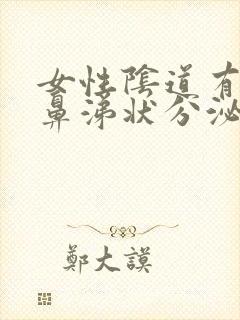 女性陰道有
鼻涕狀分泌
鄭大謨